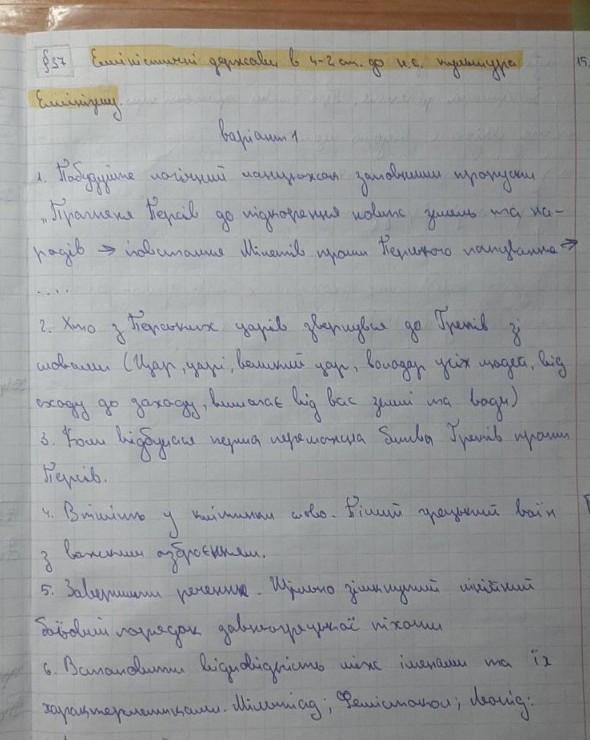 §37 Елліністичні держави в 4-2 ст. до н.е. культура
Еллінізму.
15.
варіант 1
1. Побудуйте логічний ланцюжок заповнивши пропуски
„Прагненя Персів до підкорення нових земель та на-
родів → повстання Мілетів проти Перського панування →
....
2. Хто з Перських царів звернувся до Греків зі
словами (Цар, царів, великий цар, володар усіх людей, від
сходу до заходу, вимагає від вас землі та води)
3. Коли відбулася перша переможна битва Греків проти
Персів.
4. Впишіть у клітинки слово. Піший грецький воїн
з важким озброєнням.
5. Завершити речення. Щільно зімкнутий лінійний
бойовий порядок давньогрецької піхоти
6. Встановити відповідність між іменами та їх
характеристиками. Мільтіад; Фемістокл; Леонід: